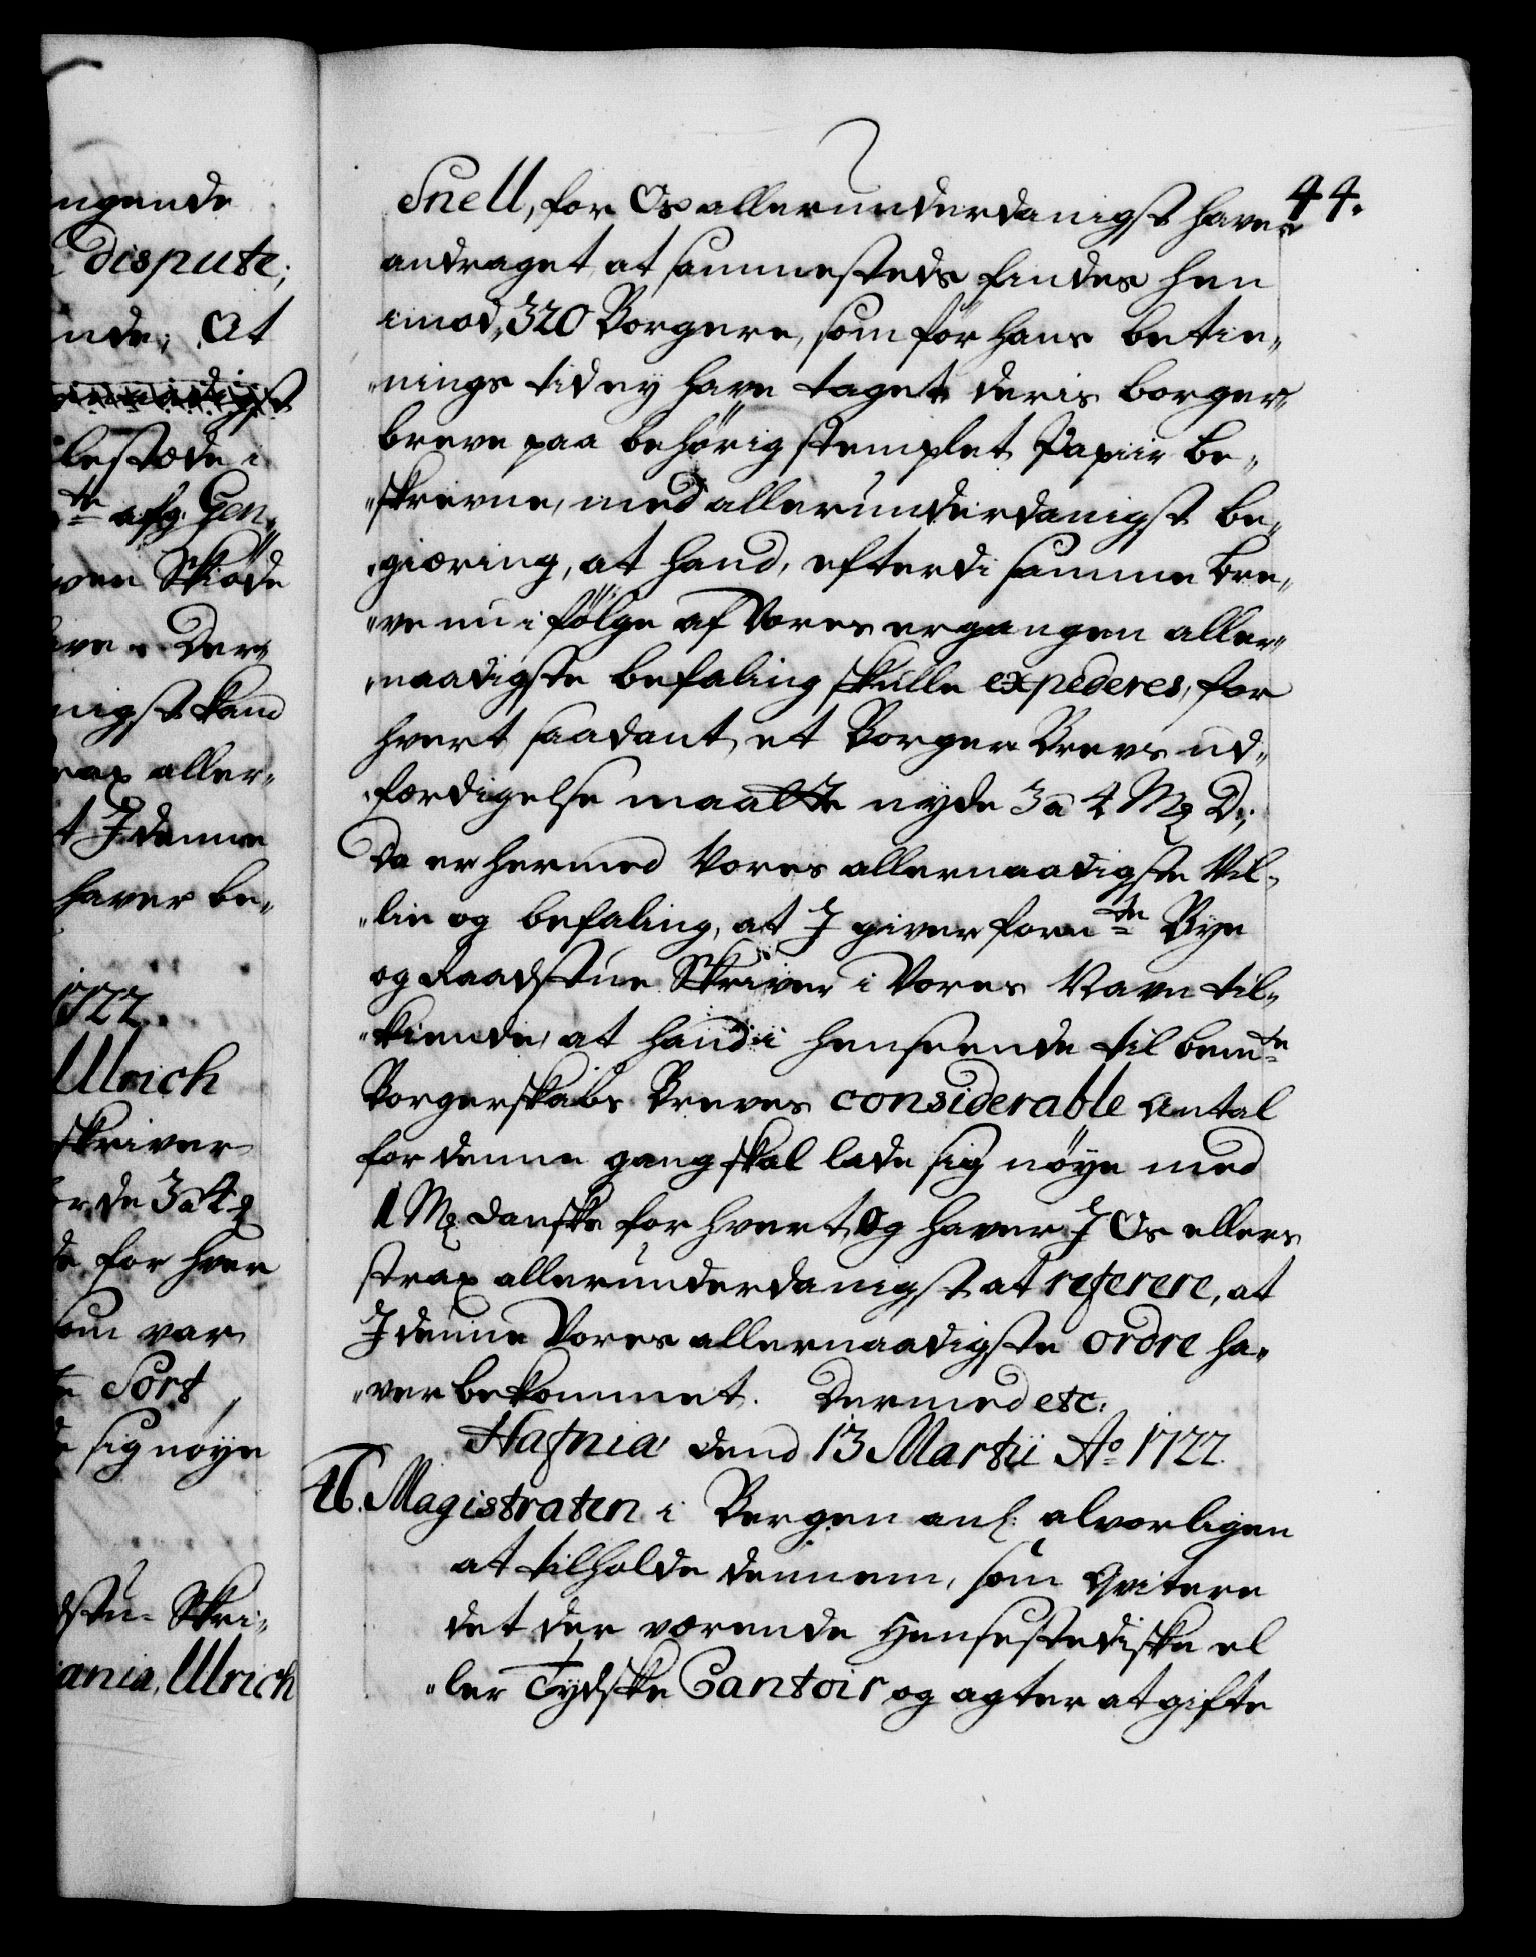 44.
Snell, for Os allerunderdanigst haver
andraget, at sammesteds findes hen
imod 320 Borgere, som før hans betie„
„nings tid ey have taget deris borger„
breve paa behørig stemplet Papiir be„
„skrevne, med allerunderdanigst be„
„giæring, at hand, efterdi samme bre„
„ve nu i følge af Vores ergangen aller„
„naadigste befaling skulle expederes, for
hvert saadant et Borger Brevs ud„
„færdigelse maatte nyde 3 a 4 Mk D.;
Da er hermed Vores allernaadigste Vil„
„lie og befaling, at I giver forn.te Bye
og Raadstue Skriver i Vores Navn til„
„kiende, at hand i henseende til bem.te
Borgerskabs Breves considerable Antal
for denne gang skal lade sig nøye med
1 Mk danske for hvert, og haver I Os ellers
strax allerunderdanigst at referere, at
I denne Vores allernaadigste ordre ha„
„ver bekommet. Dermed etc.
Hafnia dend 13 Martii Ao 1722.
46. Magistraten i Bergen anl: alvorligen
at tilholde dennem, som qvitere
det der værende Hensestediske el
„ler Tydske Cantoir og agter at gifte
ngende
dispute;
nde, At
lestæde i
te afg. Gen„
ven Skiøde
ive. Der„
nigst kand
rax aller„
t I denne
haver be„
1722.
Ulrich
skriver
de 3 a 4
for hver
som var
Sort
sig nøye
dstu- Skri„
ania, Ulrich